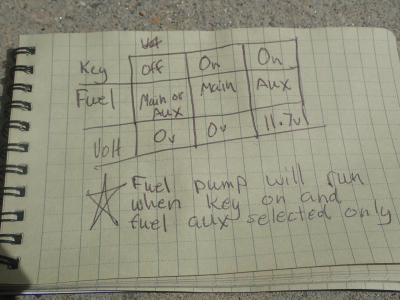 Key Off On On
Fuel Main or Aux Main Aux
Volt 0v 0v 11.7v
Fuel pump will run
when key on and
fuel aux selected only